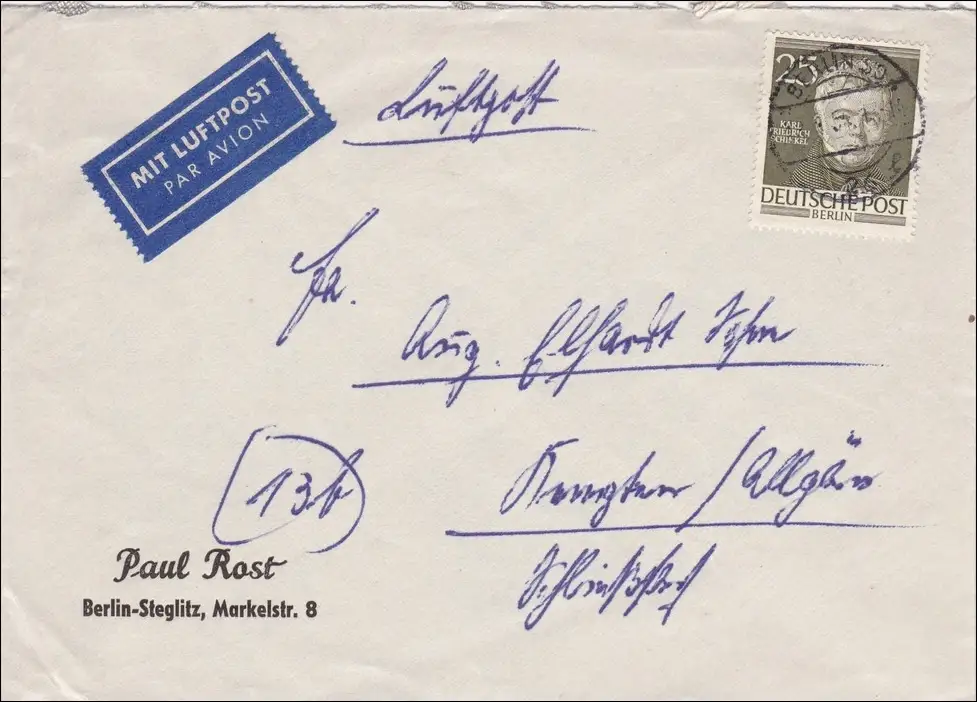 MIT LUFTPOST
PAR AVION
Luftpost
25
KARL
FRIEDRICH
SCHINKEL
DEUTSCHE POST
BERLIN
BERLIN SO
Fa.
Aug. Elhardt Söhne
13b
Kempten / Allgäu
Schließfach
Paul Rost
Berlin-Steglitz, Markelstr. 8